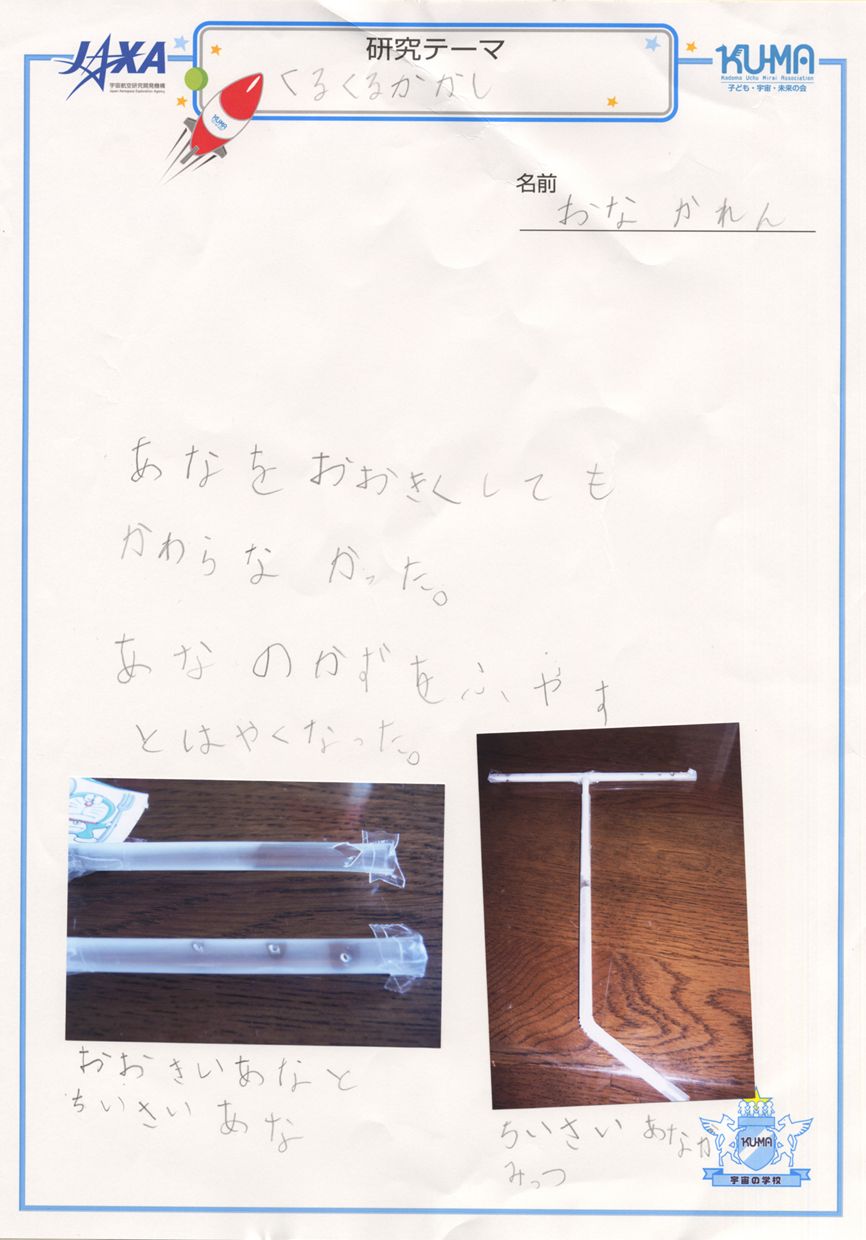 JAXA
宇宙航空研究開発機構
Japan Aerospace Exploration Agency
研究テーマ
くるくるかかし
KU-MA
Kodomo Uchu Mirai Association
子ども・宇宙・未来の会
KU-MA
名前
おな かれん
あなをおおきくしても
かわらなかった。
あなのかずをふやす
とはやくなった。
おおきいあなと
ちいさいあな
ちいさいあなが
みっつ
KU-MA
宇宙の学校